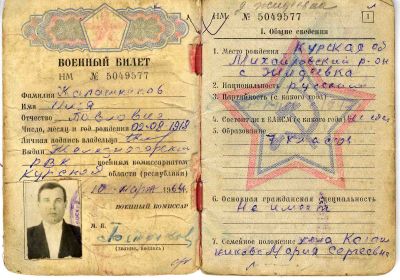 ВОЕННЫЙ БИЛЕТ
НМ № 5049577
Фамилия
Имя Илья
Отчество Павлович
Число, месяц и год рождения 02-08 1918
Личная подпись владельца
Выдан Железногорским
РВК военным комиссариатом
Курской области (республики)
10 марта 1964 г.
ВОЕННЫЙ КОМИССАР
М. П.
(звание, подпись)
д. Жидеевка
НМ № 5049577
1
I. Общие сведения
1. Место рождения Курская об
Михайловский р-он
с Жидеевка
2. Национальность русский
3. Партийность (с какого года)
4. Состоит ли в ВЛКСМ (с какого года)
5. Образование
7 классов
6. Основная гражданская специальность
Не имеет
7. Семейное положение жена
Мария Сергеевна